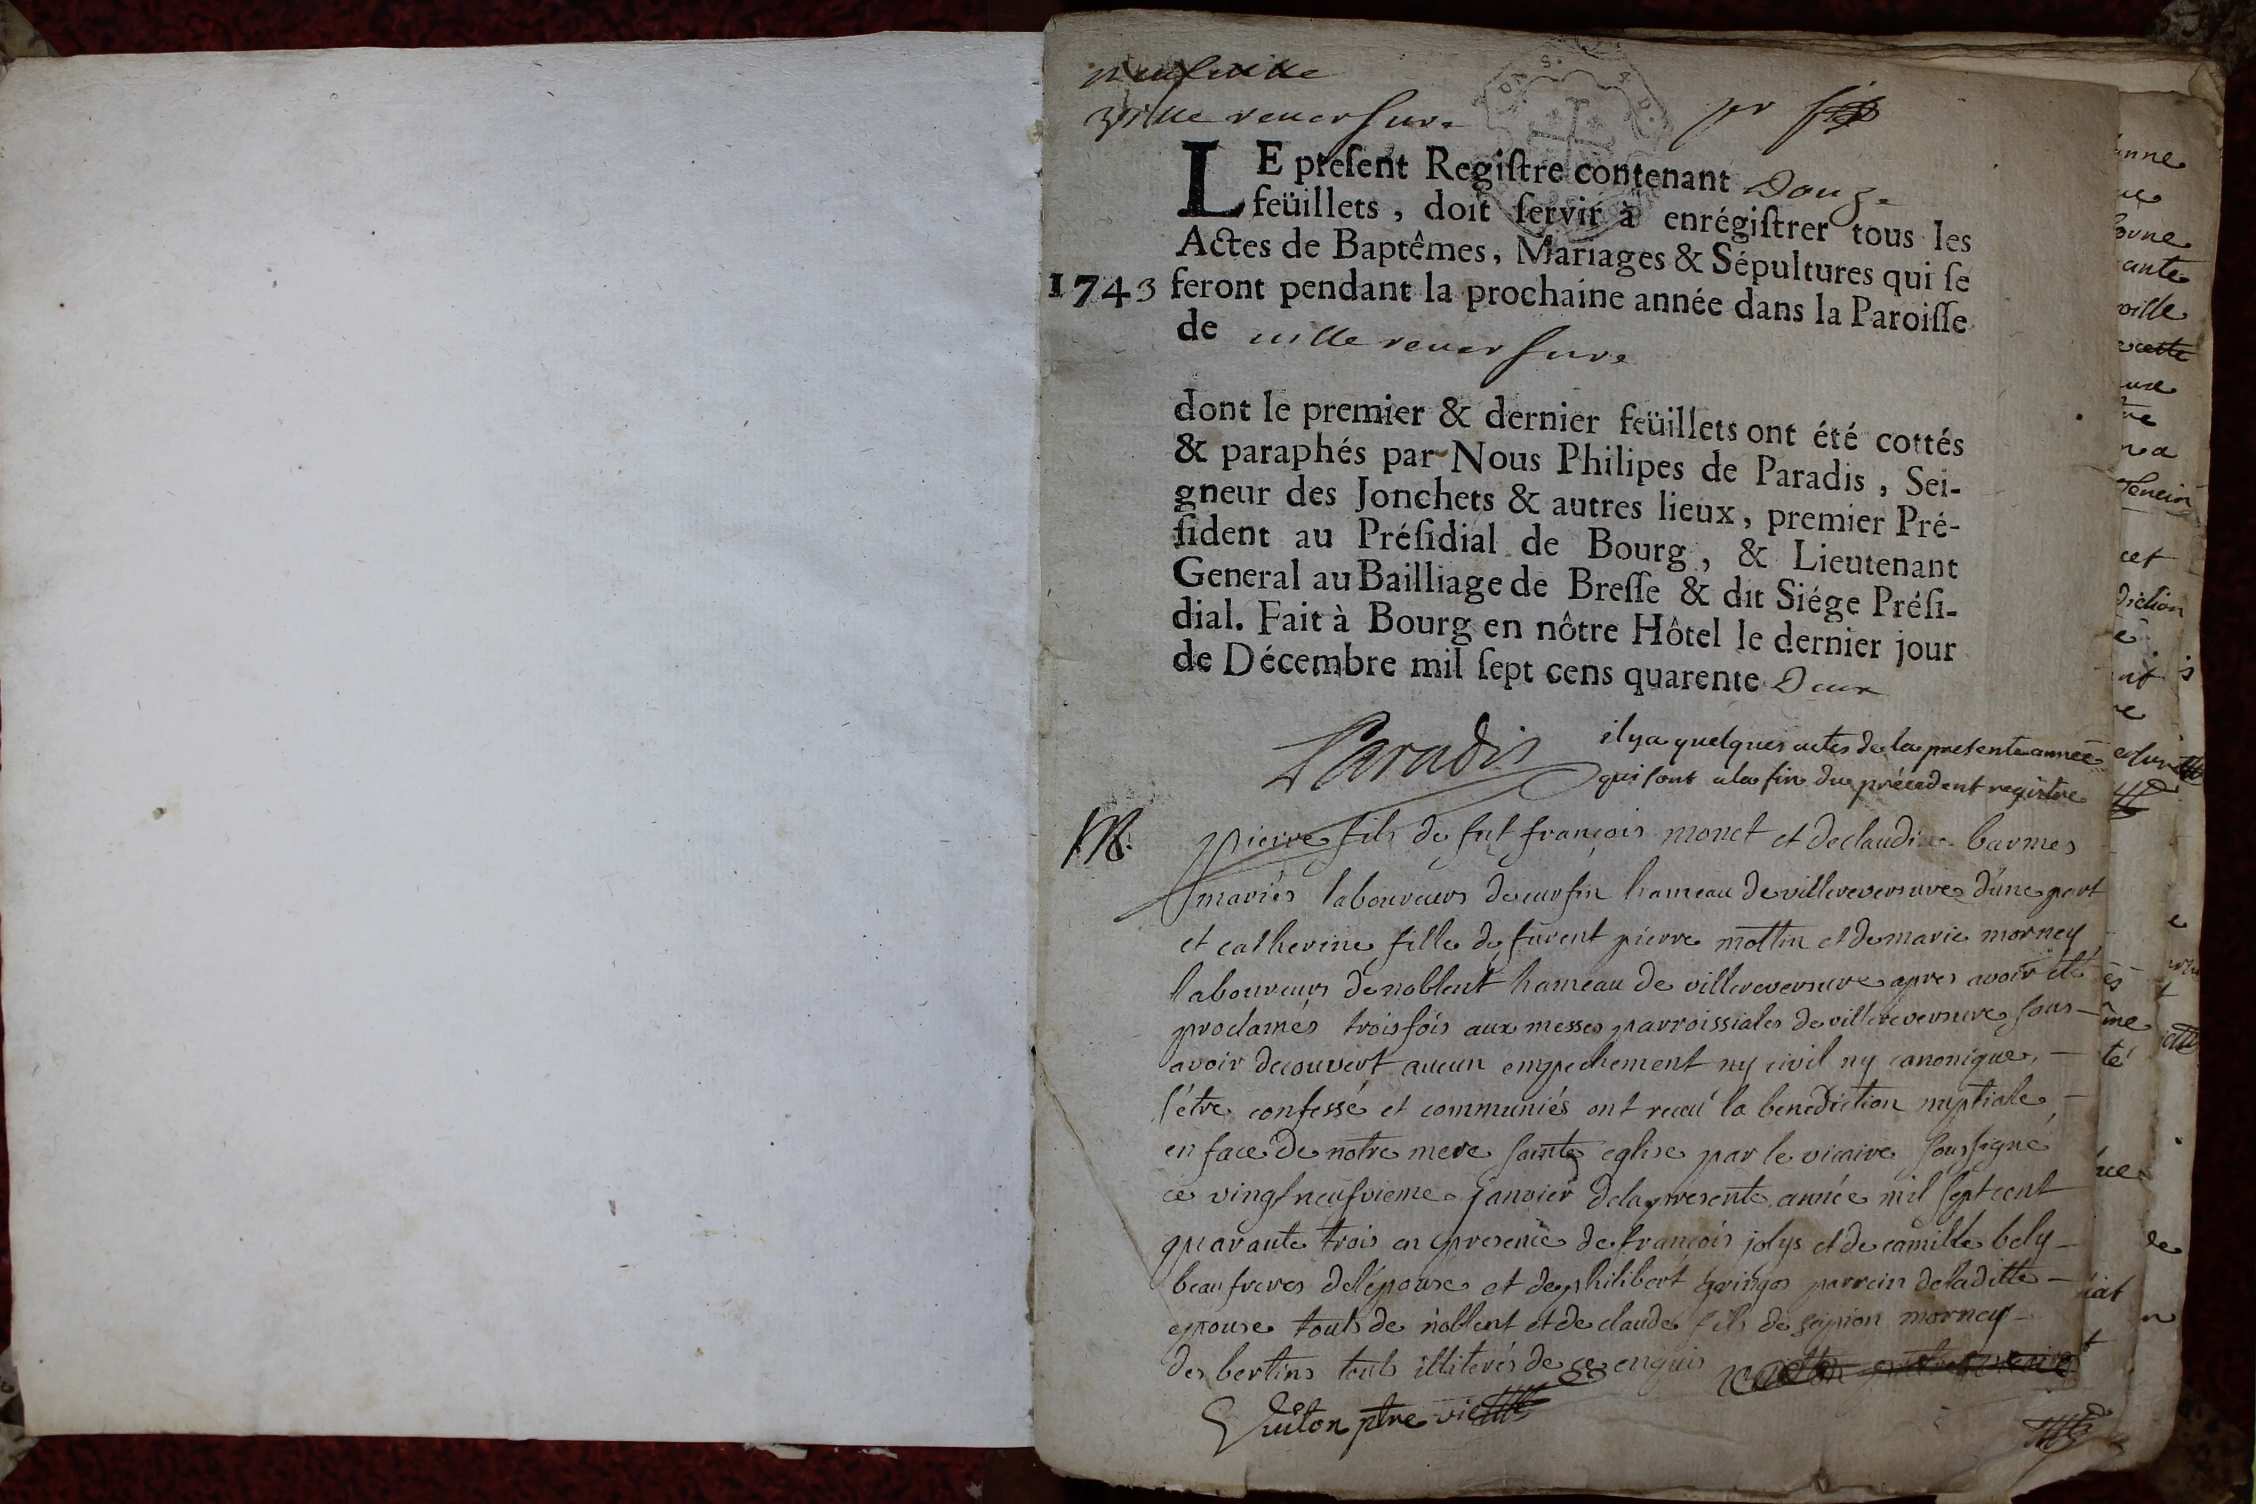 ville reversure
LE present Registre contenant Douze
feüillets, doit servir à enrégistrer tous les
Actes de Baptêmes, Mariages & Sépultures qui se
1743 feront pendant la prochaine année dans la Paroisse
de ville reversure
dont le premier & dernier feüillets ont été cottés
& paraphés par Nous Philipes de Paradis, Sei-
gneur des Jonchets & autres lieux, premier Pré-
sident au Présidial de Bourg, & Lieutenant
General au Bailliage de Bresse & dit Siége Prési-
dial. Fait à Bourg en nôtre Hôtel le dernier jour
de Décembre mil sept cens quarente Deux
Paradis
il y a quelques actes de la presente année
qui sont a la fin du précedent registre
M. pierre fils de fut françois monet et de claudine barmes
mariés laboureurs de cursin hameau de villereversure d'une part
et catherine fille de furent pierre mottin et de marie morney
laboureurs de noblent hameau de villereversure apres avoir été
proclamés trois fois aux messes parroissiales de villereversure sans
avoir decouvert aucun empechement ny civil ny canonique,
s'être confessé et communiés ont receu la benediction nuptiale
en face de notre mere sainte eglise par le vicaire soussigné
ce vingt neufvieme janvier de la presente année mil sept cent
quarante trois en presence de françois jolys et de camille bely
beaufreres de l'épouse et de philibert gringos parrein de la ditte
epouse touts de noblent et de claude fils de scipion morney
des bertins touts illiterés de ce enquis
Guiton ptre vic